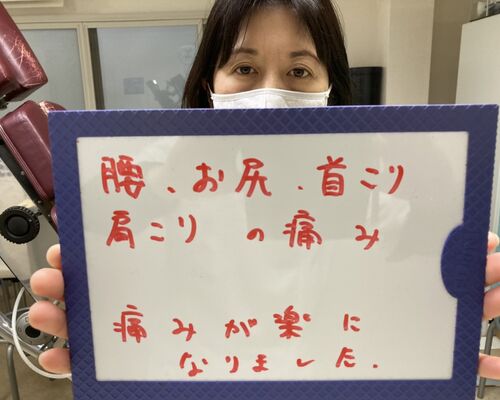 腰、お尻、首こり
肩こりの痛み
痛みが楽に
なりました.